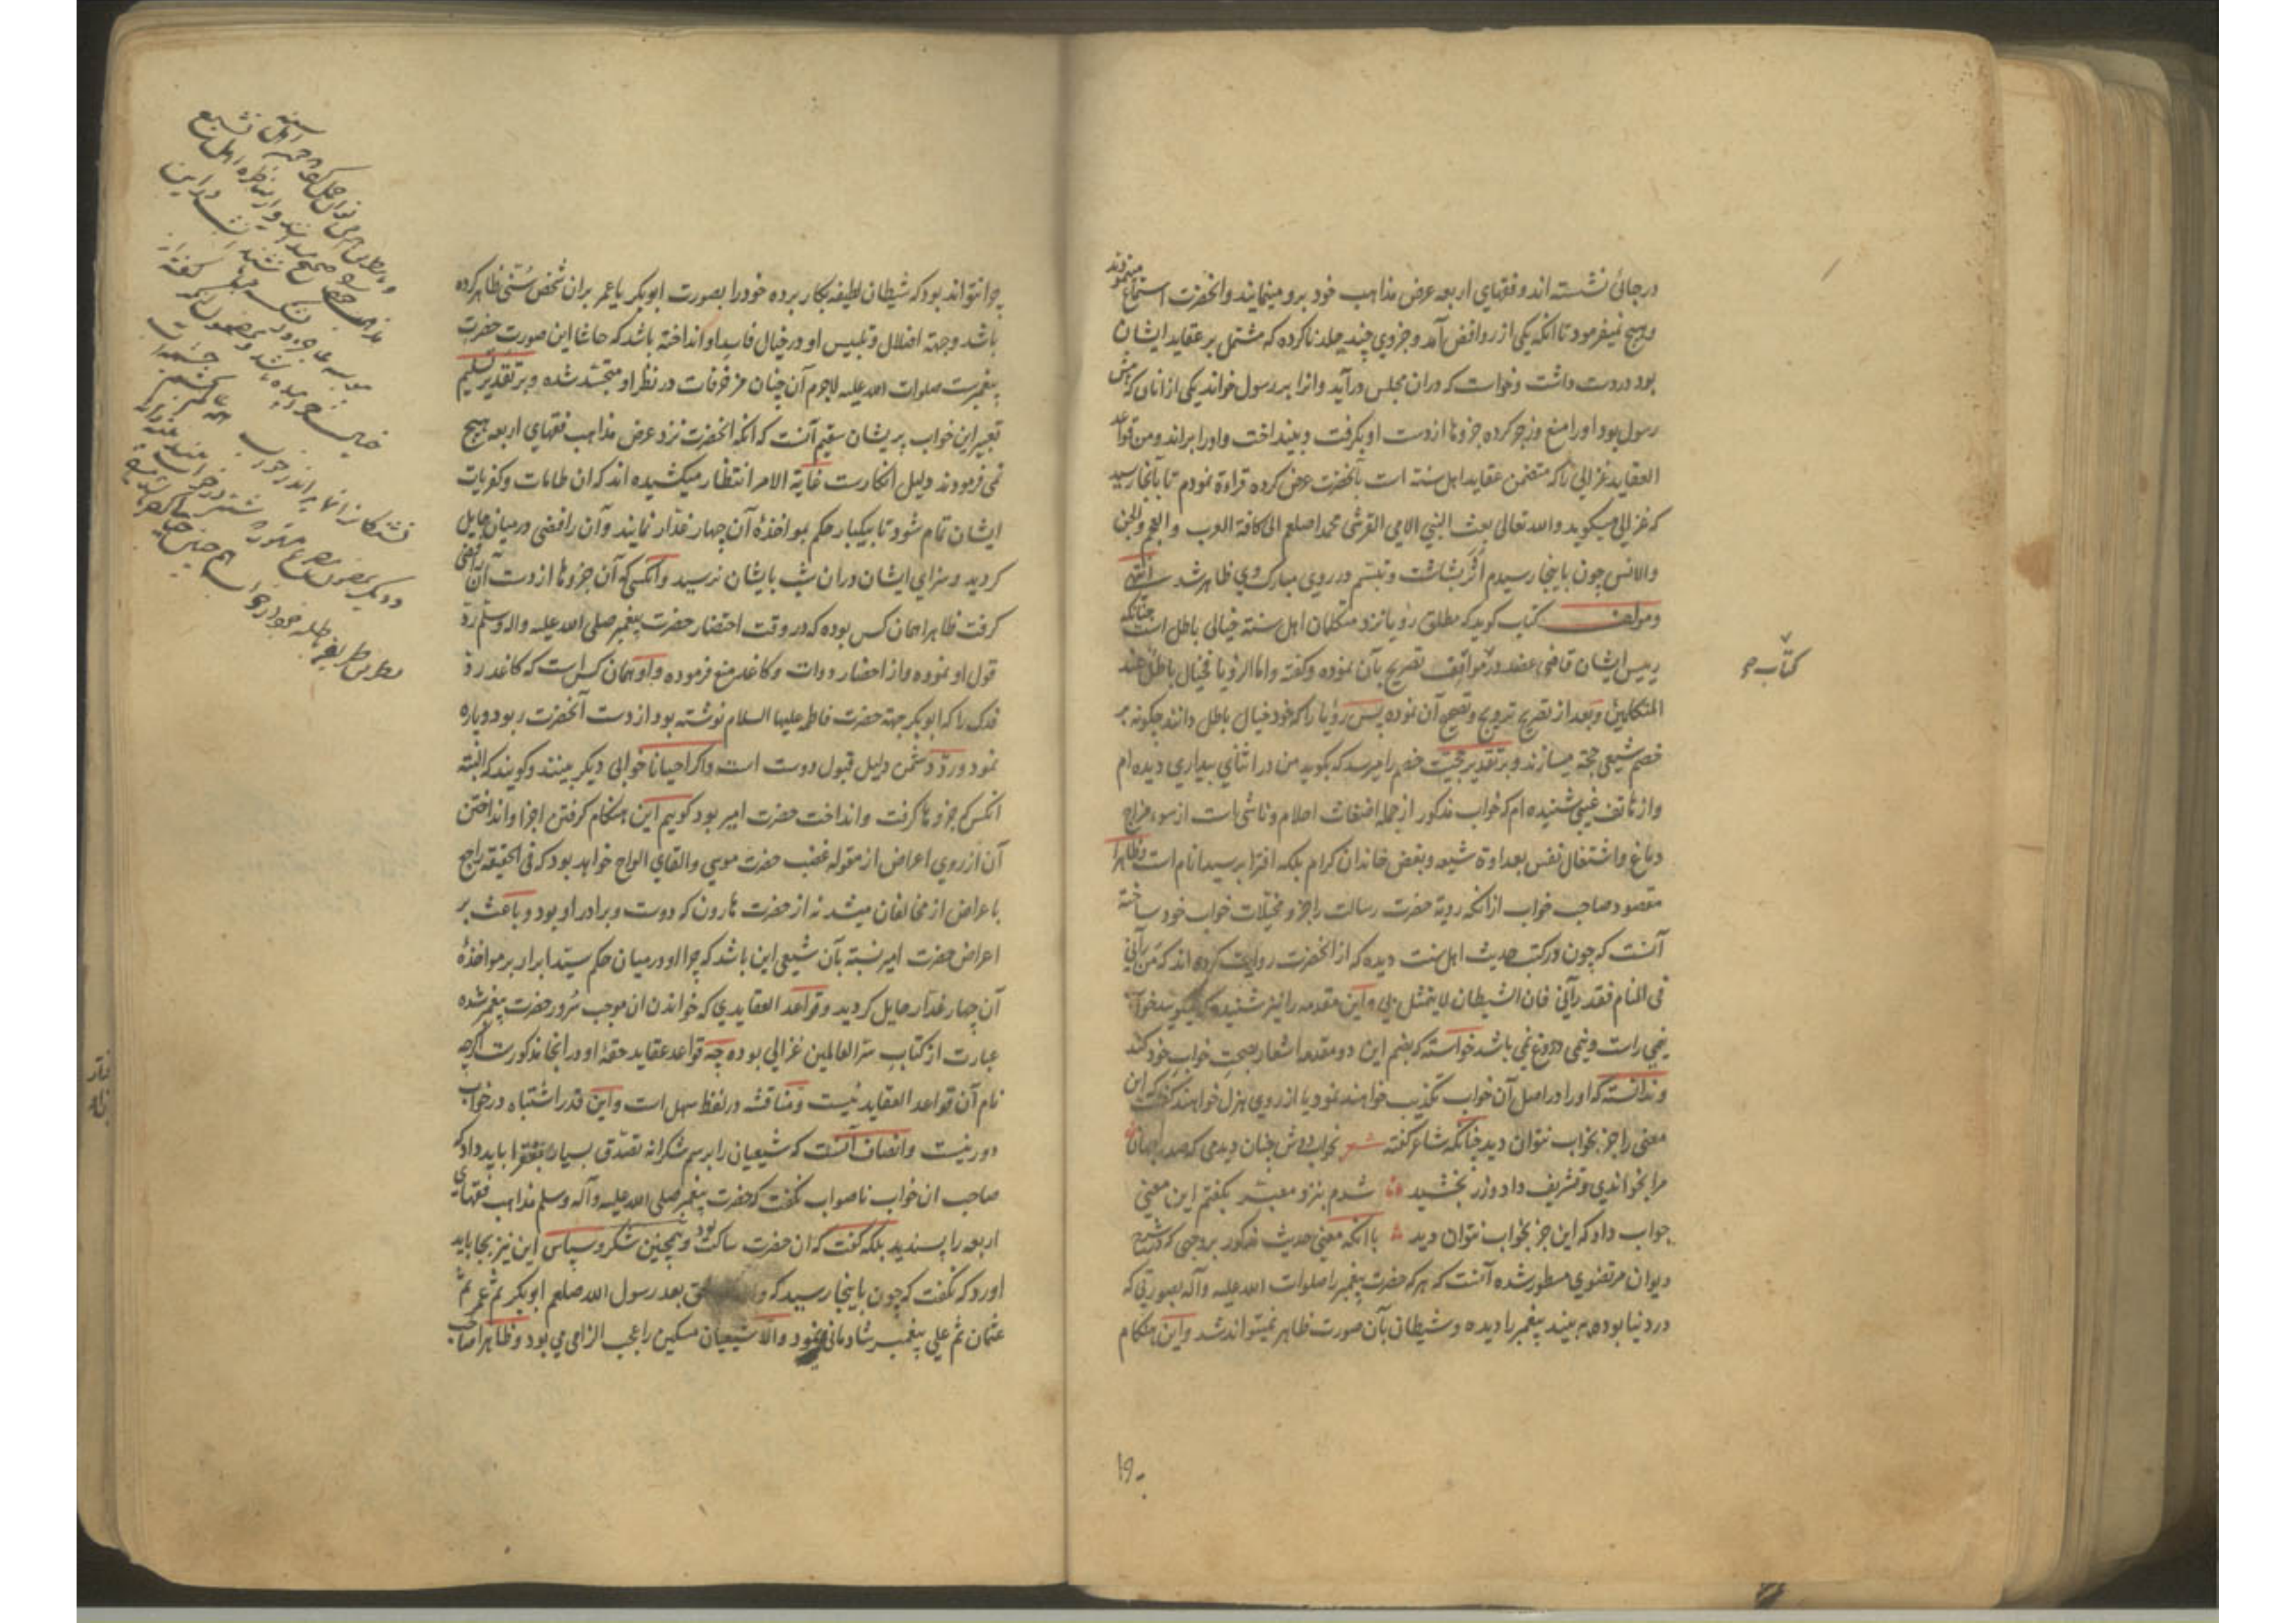 در جائی نشسته اند و فقهای اربعه عرض مذاهب خود برو مینمایند وانحضرت استماع مینمودند
وهیچ نمیفرمود تا انکه یکی از روافض آمد و جزوی چند جلد ناکرده که مشتمل بر عقاید ایشان
بود در دست داشت وخواست که دران مجلس درآید وانرا بر رسول خواند یکی از انان که پیش
رسول بود اورا منع و زجر کرده جزوها از دست او بگرفت و بینداخت واورا براند ومن قواعد
العقاید غزالی را که متضمن عقاید اهل سنة است بآنحضرت عرض کرده قراءة نمودم تا بآنجا رسید
که غزالی میگوید والله تعالی بعث النبی الامی القرشی محمدا صلعم الی کافة العرب والعجم والجن
والانس چون باینجا رسیدم اثر بشاشت وتبسم در روی مبارک وی ظاهر شد انتهی
ومولف کتاب گوید که مطلق رؤیا نزد متکلمان اهل سنة خیالی باطل است چنانکه
رییس ایشان قاضی عضد در مواقف تصریح بآن نموده وگفته واما الرؤیا فخیال باطل عند
المتکلمین وبعد از تصریح ترویج وتصحیح آن نموده پس رؤیا را که خود خیال باطل دانند چگونه بر
خصم شیعی حجة میسازند وبر تقدیر حجیت خصم را میرسد که بگوید من در اثنای بیداری دیده ام
واز هاتف غیبی شنیده ام که خواب مذکور از جمله اضغاث احلام وناشی است از سوء مزاج
دماغ واشتغال نفس بعداوة شیعه وبغض خاندان کرام بلکه افترا بر سید انام است وظاهرا
مقصود صاحب خواب ازانکه رویة حضرت رسالت را جزو مخیلات خواب خود ساخته
آنست که چون در کتب حدیث اهل سنت دیده که از انحضرت روایت کرده اند که من رآنی
فی المنام فقد رآنی فان الشیطان لا یتمثل بی واین مقدمه را نیز شنیده که میگویند خواب
نیمی راست ونیمی دروغ نمی باشد خواسته که بضم این دو مقدمه اشعار بصحت خواب خود کند
وندانسته که اورا در اصل آن خواب تکذیب خواهند نمود یا از روی هزل خواهند گفت که این
معنی را جز بخواب نتوان دید چنانکه شاعر گفته شعر بخواب دوش چنان دیدمی که صدر جهان
مرا بخواندی وتشریف داد وزر بخشید شدم بنزد معبر بگفتم این معنی
جواب داد که این جز بخواب نتوان دید با انکه معنی حدیث مذکور بروجهی که در شرح
دیوان مرتضوی مسطور شده آنست که هر که حضرت پیغمبر را صلوات الله علیه وآله بصورتی که
در دنیا بوده ببیند پیغمبر را دیده وشیطان بآن صورت ظاهر نمیتواند شد واین هنگام
کتاب
۱۹۰
چرا نتواند بود که شیطان لطیفه بکار برده خود را بصورت ابوبکر یا عمر بران شخص سنی ظاهر کرده
باشد وجهة اضلال وتلبیس او در خیال فاسد او انداخته باشد که حاشا این صورت حضرت
پیغمبرست صلوات الله علیه لاجرم آن چنان مزخرفات در نظر او متجسد شده وبر تقدیر تسلیم
تعبیر این خواب پریشان سقیم آنست که انکه انحضرت نزد عرض مذاهب فقهای اربعه هیچ
نمی فرمودند دلیل انکارست غایة الامر انتظار میکشیده اند که ان طامات وکفریات
ایشان تمام شود تا بیکبار حکم بمواخذهٔ آن چهار غدار نمایند وآن رافضی در میان حایل
گردید وسزای ایشان دران شب بایشان نرسید وآنکسی که آن جزوها از دست آن رافضی
گرفت ظاهرا همان کس بوده که در وقت احتضار حضرت پیغمبر صلی الله علیه واله وسلم رد
قول او نموده واز احضار دوات وکاغذ منع فرموده واو همان کس است که کاغذ رد
فدک را که ابوبکر جهة حضرت فاطمه علیها السلام نوشته بود از دست آنحضرت ربود وپاره
نمود ورد دشمن دلیل قبول دوست است واگر احیانا خوابی دیگر ببینند وگویند که البته
انکس که جزوها گرفت وانداخت حضرت امیر بود گوییم این هنگام گرفتن اجزا وانداختن
آن از روی اعراض از مقوله غضب حضرت موسی والقای الواح خواهد بود که فی الحقیقه راجع
باعراض از مخالفان میشد نه از حضرت هارون که دوست وبرادر او بود وباعث بر
اعراض حضرت امیر نسبة بآن شیعی این باشد که چرا او در میان حکم سید ابرار بر مواخذهٔ
آن چهار غدار حایل گردید وقواعد العقایدی که خواندن ان موجب سرور حضرت پیغمبر شده
عبارت از کتاب سر العالمین غزالی بوده چه قواعد عقاید حقهٔ او در انجا مذکورست اگرچه
نام آن قواعد العقاید نیست ومناقشه در لفظ سهل است واین قدر اشتباه در خواب
دور نیست وانصاف آنست که شیعیان را برسم شکرانه تصدق بسیار بفقرا باید داد که
صاحب ان خواب ناصواب نگفت که حضرت پیغمبر صلی الله علیه وآله وسلم مذاهب فقهای
اربعه را پسندید بلکه گفت که ان حضرت ساکت بود وهمچنین شکر وسپاس این نیز بجا باید
اورد که نگفت که چون باینجا رسید که بعد رسول الله صلعم ابوبکر ثم عمر ثم
عثمان ثم علی پیغمبر شادمانی نمود والا شیعیان مسکین را عجب الزامی می بود وظاهرا صاحب